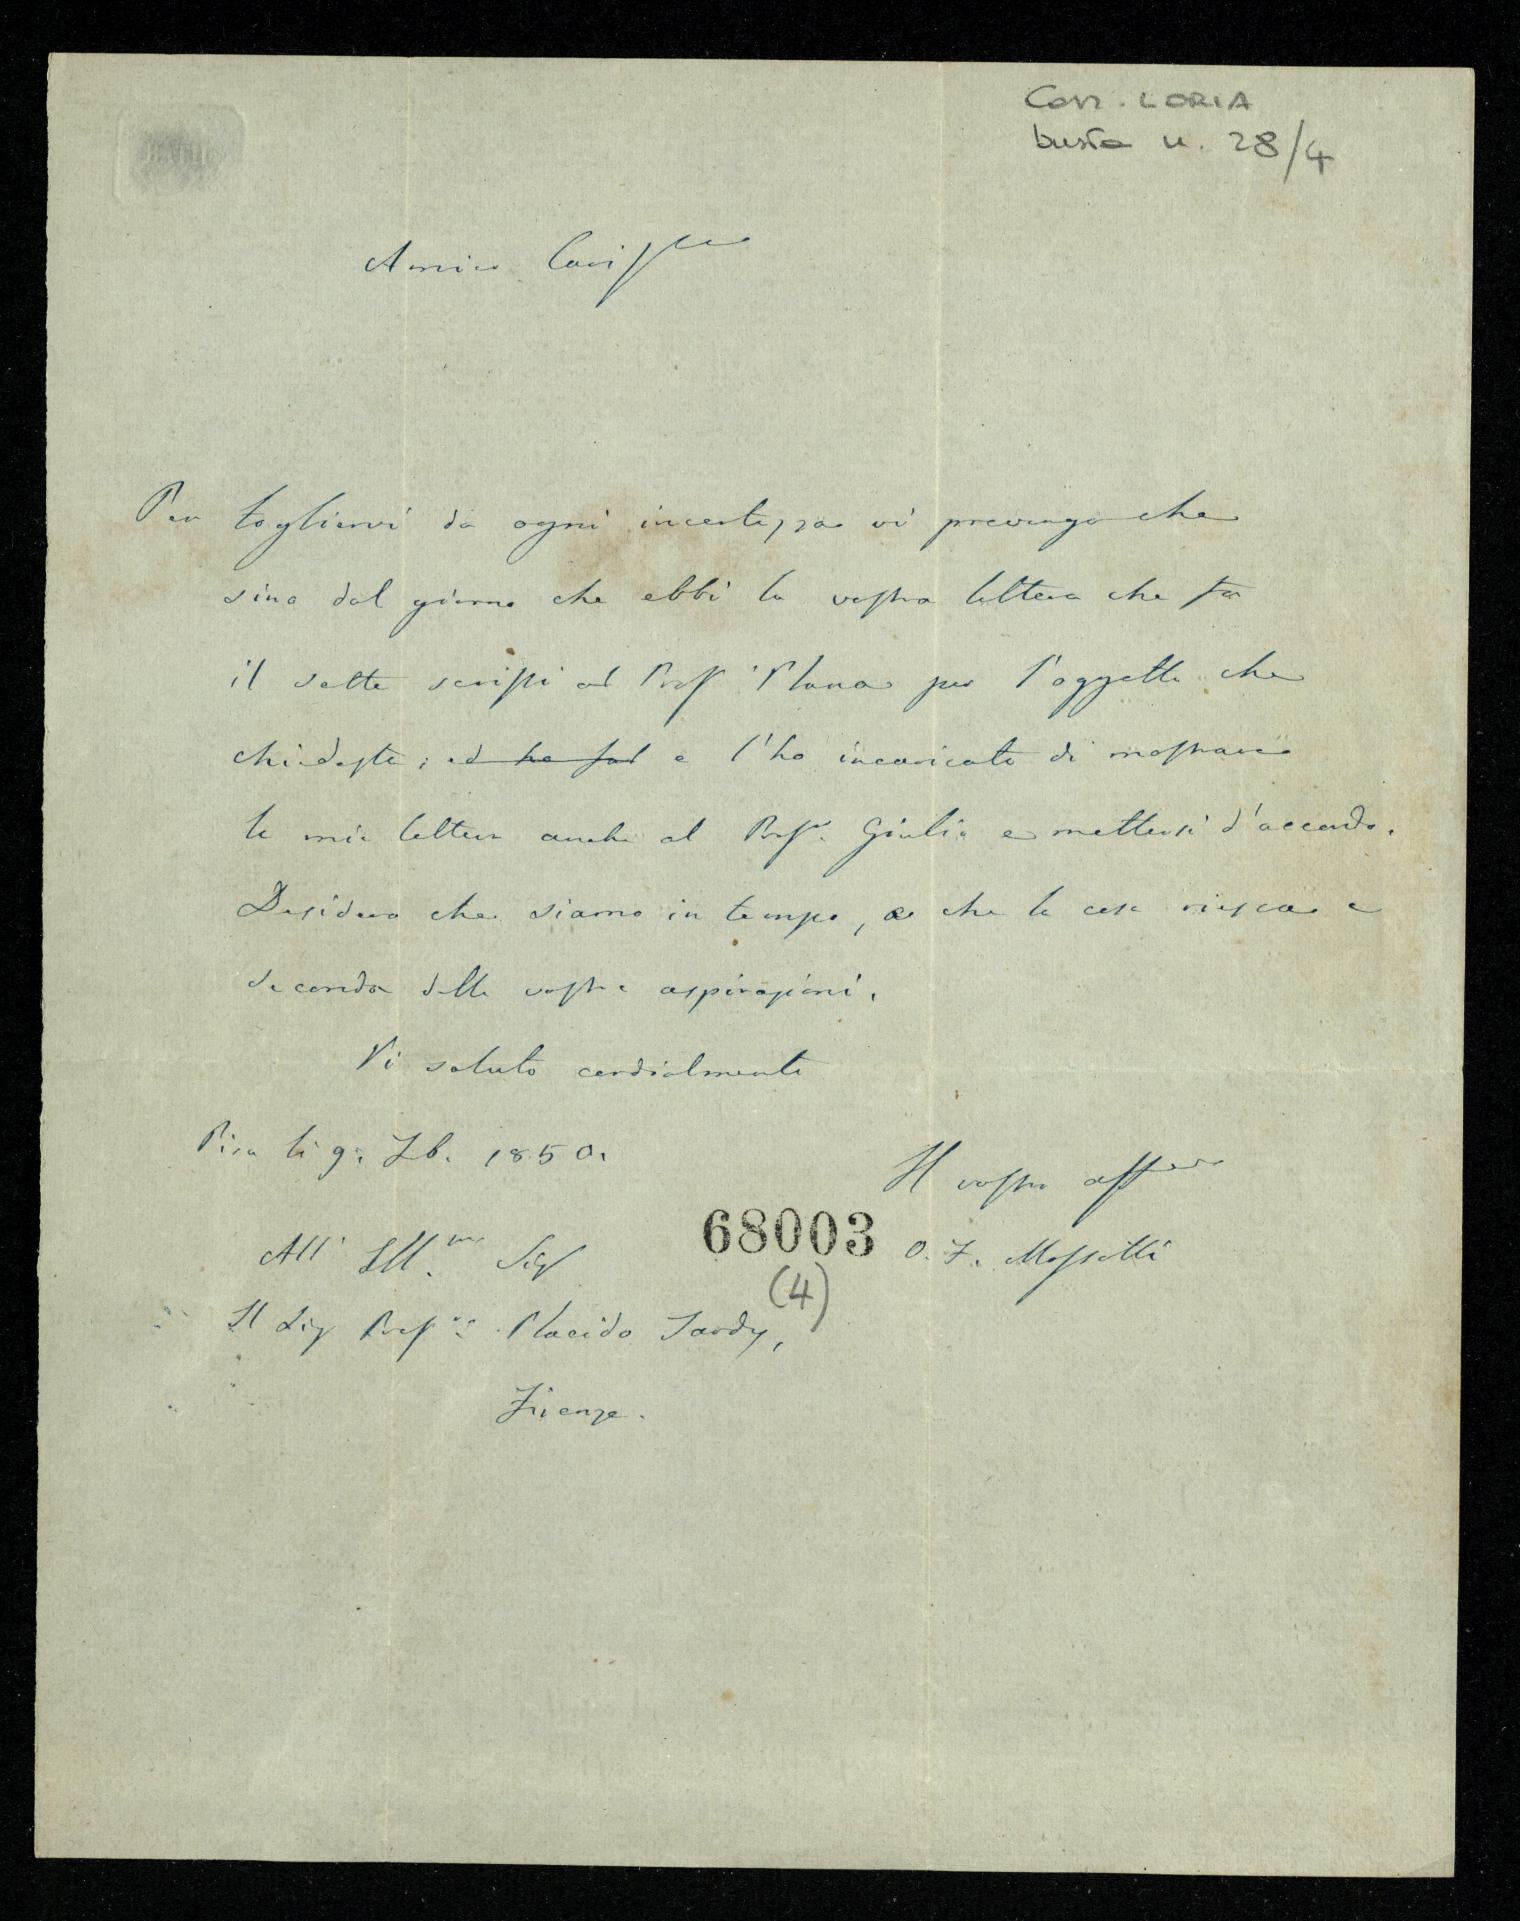 Corr. LORIA
busta n. 28/4
Amico Cariss.mo
Per togliervi da ogni incertezza vi prevengo che
sino dal giorno che ebbi la vostra lettera che fu
il sette scrissi al Prof. Plana per l'oggetto che
chiedeste; ed e l'ho incaricato di mostrare
la mia lettera anche al Prof.r Giulio e mettersi d'accordo.
Desidero che siamo in tempo, e che la cosa riesca a
seconda delle vostre aspirazioni.
Vi saluto cordialmente
Pisa li 9. 1850.
Il vostro aff.mo
68003
O. F. Mossotti
All' Ill.mo Sig
(4)
Il Sig Prof.re Placido Tardy,
Firenze.